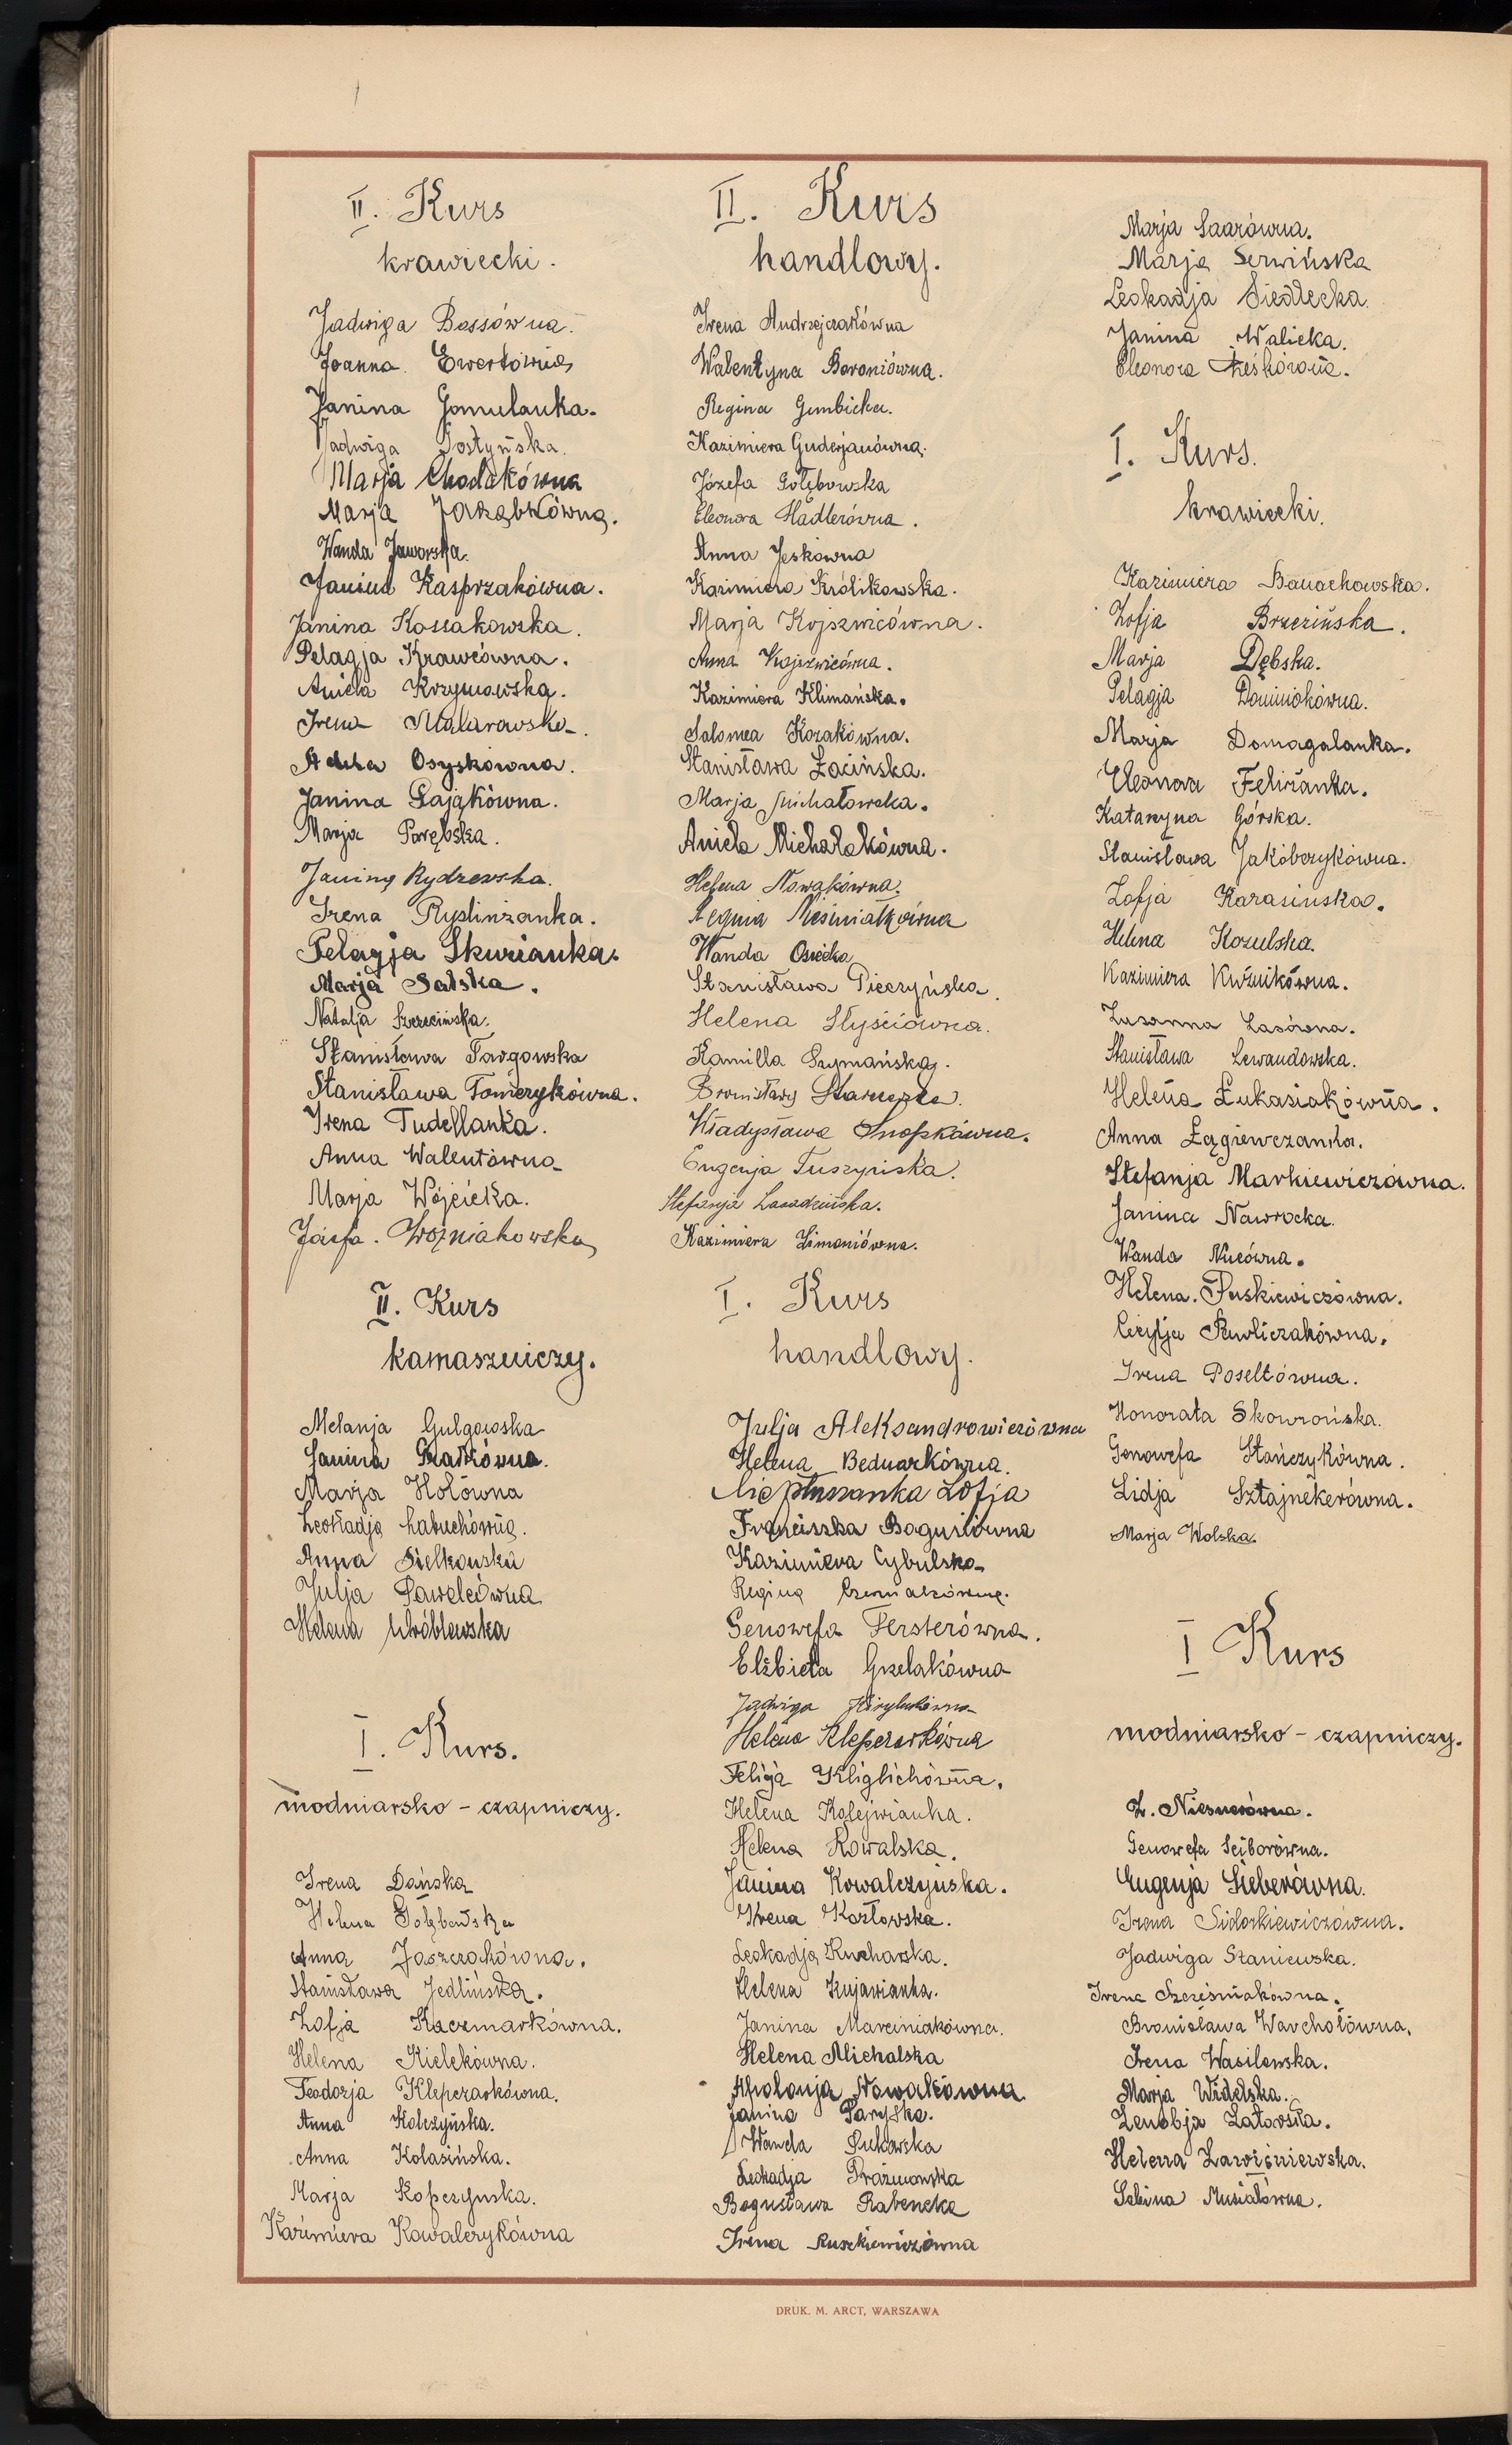 II. Kurs
krawiecki.
Jadwiga Bossówna.
Joanna Ewertówna
Janina Gomulanka.
Jadwiga Gostyńska.
Marja Chodakówna
Marja Jarząbkówna.
Wanda Jaworska.
Janina Kasprzakówna.
Janina Kossakowska.
Pelagja Krawcówna.
Aniela Krzymowska.
Irena
Osyskówna.
Janina Pająkówna.
Marja Porębska.
Janina Rydzewska.
Irena Ryslinżanka.
Pelagja Skurianka.
Marja Salska.
Natalja
Stanisława Targowska
Stanisława Tomczykówna.
Irena Tudellanka.
Anna Walentówna
Marja Wójcicka.
Józefa Woźniakowska
II. Kurs
kamaszniczy.
Melanja Gulgowska
Janina
Marja Hołówna
Leokadja Łabuchówna.
Anna Sielkowska
Julja Pawelcówna
Helena Wróblewska
I. Kurs.
modniarsko - czapniczy.
Irena Dańska
Helena Gołębowska
Anna Jaszczakówna.
Stanisława Jedlińska.
Zofja Kaczmarkówna.
Helena Kielekówna.
Teodozja Klepczarkówna.
Anna Kolczyńska.
Anna Kolasińska.
Marja Kopczyńska.
Kazimiera Kowalczykówna
II. Kurs
handlowy.
Irena Andrzejczakówna
Walentyna Boroniówna.
Regina Gumbicka.
Kazimiera Guderjanówna.
Józefa Gołębowska
Eleonora Hädlerówna.
Anna Jeskówna
Kazimiera Królikowska.
Marja Kojszwicówna.
Anna Kojszwicówna.
Kazimiera Klimańska.
Salomea Kozakówna.
Stanisława Łacińska.
Marja Michałowska.
Aniela Michalakówna.
Helena Nowakówna.
Regina Nieśmiałkówna
Wanda Osiecka
Stanisława Pieczyńska.
Helena Słyściówna.
Kamilla Szymańska.
Bronisława
Władysława Snopkówna.
Eugenja Tuszyńska.
Stefanja Zawadzińska.
Kazimiera Zimoniówna.
I. Kurs
handlowy.
Julja Aleksandrowiczówna
Helena Bednarkówna.
Zofja
Franciszka Bogusiówna
Kazimiera Cybulska
Regina Czerniakówna.
Genowefa Fersterówna.
Elżbieta Grzelakówna
Jadwiga
Helena Klepczarkówna
Felicja Kliglichówna.
Helena Kolejwianka.
Helena Kowalska.
Janina Kowalczyńska.
Irena Kozłowska.
Leokadja Kucharska.
Helena Kujawianka.
Janina Marciniakówna.
Helena Michalska
Apolonja Nowakówna
Janina Paryska.
Wanda Pukawska
Leokadja Prażmowska
Bogusława Rabencka
Irena Ruszkiewiczówna
Marja Saarówna.
Marja Serwińska
Leokadja Siedlecka.
Janina Walicka.
Eleonora
I. Kurs.
krawiecki.
Kazimiera Banachowska.
Zofja Brzezińska.
Marja Dębska.
Pelagja Dominiokówna.
Marja Domagalanka.
Eleonora Felisianka.
Katarzyna Górska.
Stanisława Jakóbczykówna.
Zofja Karasińska.
Helena Kozulska.
Kazimiera Kuźnikówna.
Zuzanna Lasówna.
Stanisława Lewandowska.
Helena Łukasiakówna.
Anna Łągiewczanka.
Stefanja Markiewiczówna.
Janina Nawrocka.
Wanda Nucówna.
Helena Puskiewiczówna.
Cezylja Pawliczakówna.
Irena Poseltówna.
Honorata Skowrońska.
Genowefa Stańczykówna.
Lidja Sztajnekerówna.
Marja Wolska.
I Kurs
modniarsko - czapniczy.
Z. Niesnerówna.
Genowefa Sciborówna.
Eugenja Sieberówna.
Irena Sidorkiewiczówna.
Jadwiga Staniewska.
Irena Szcześniakówna.
Bronisława Warchołówna.
Irena Wasilewska.
Marja Widelska.
Zenobja Zatorska.
Helena Zawiśniewska.
Sabina Musiałówna.
DRUK. M. ARCT, WARSZAWA